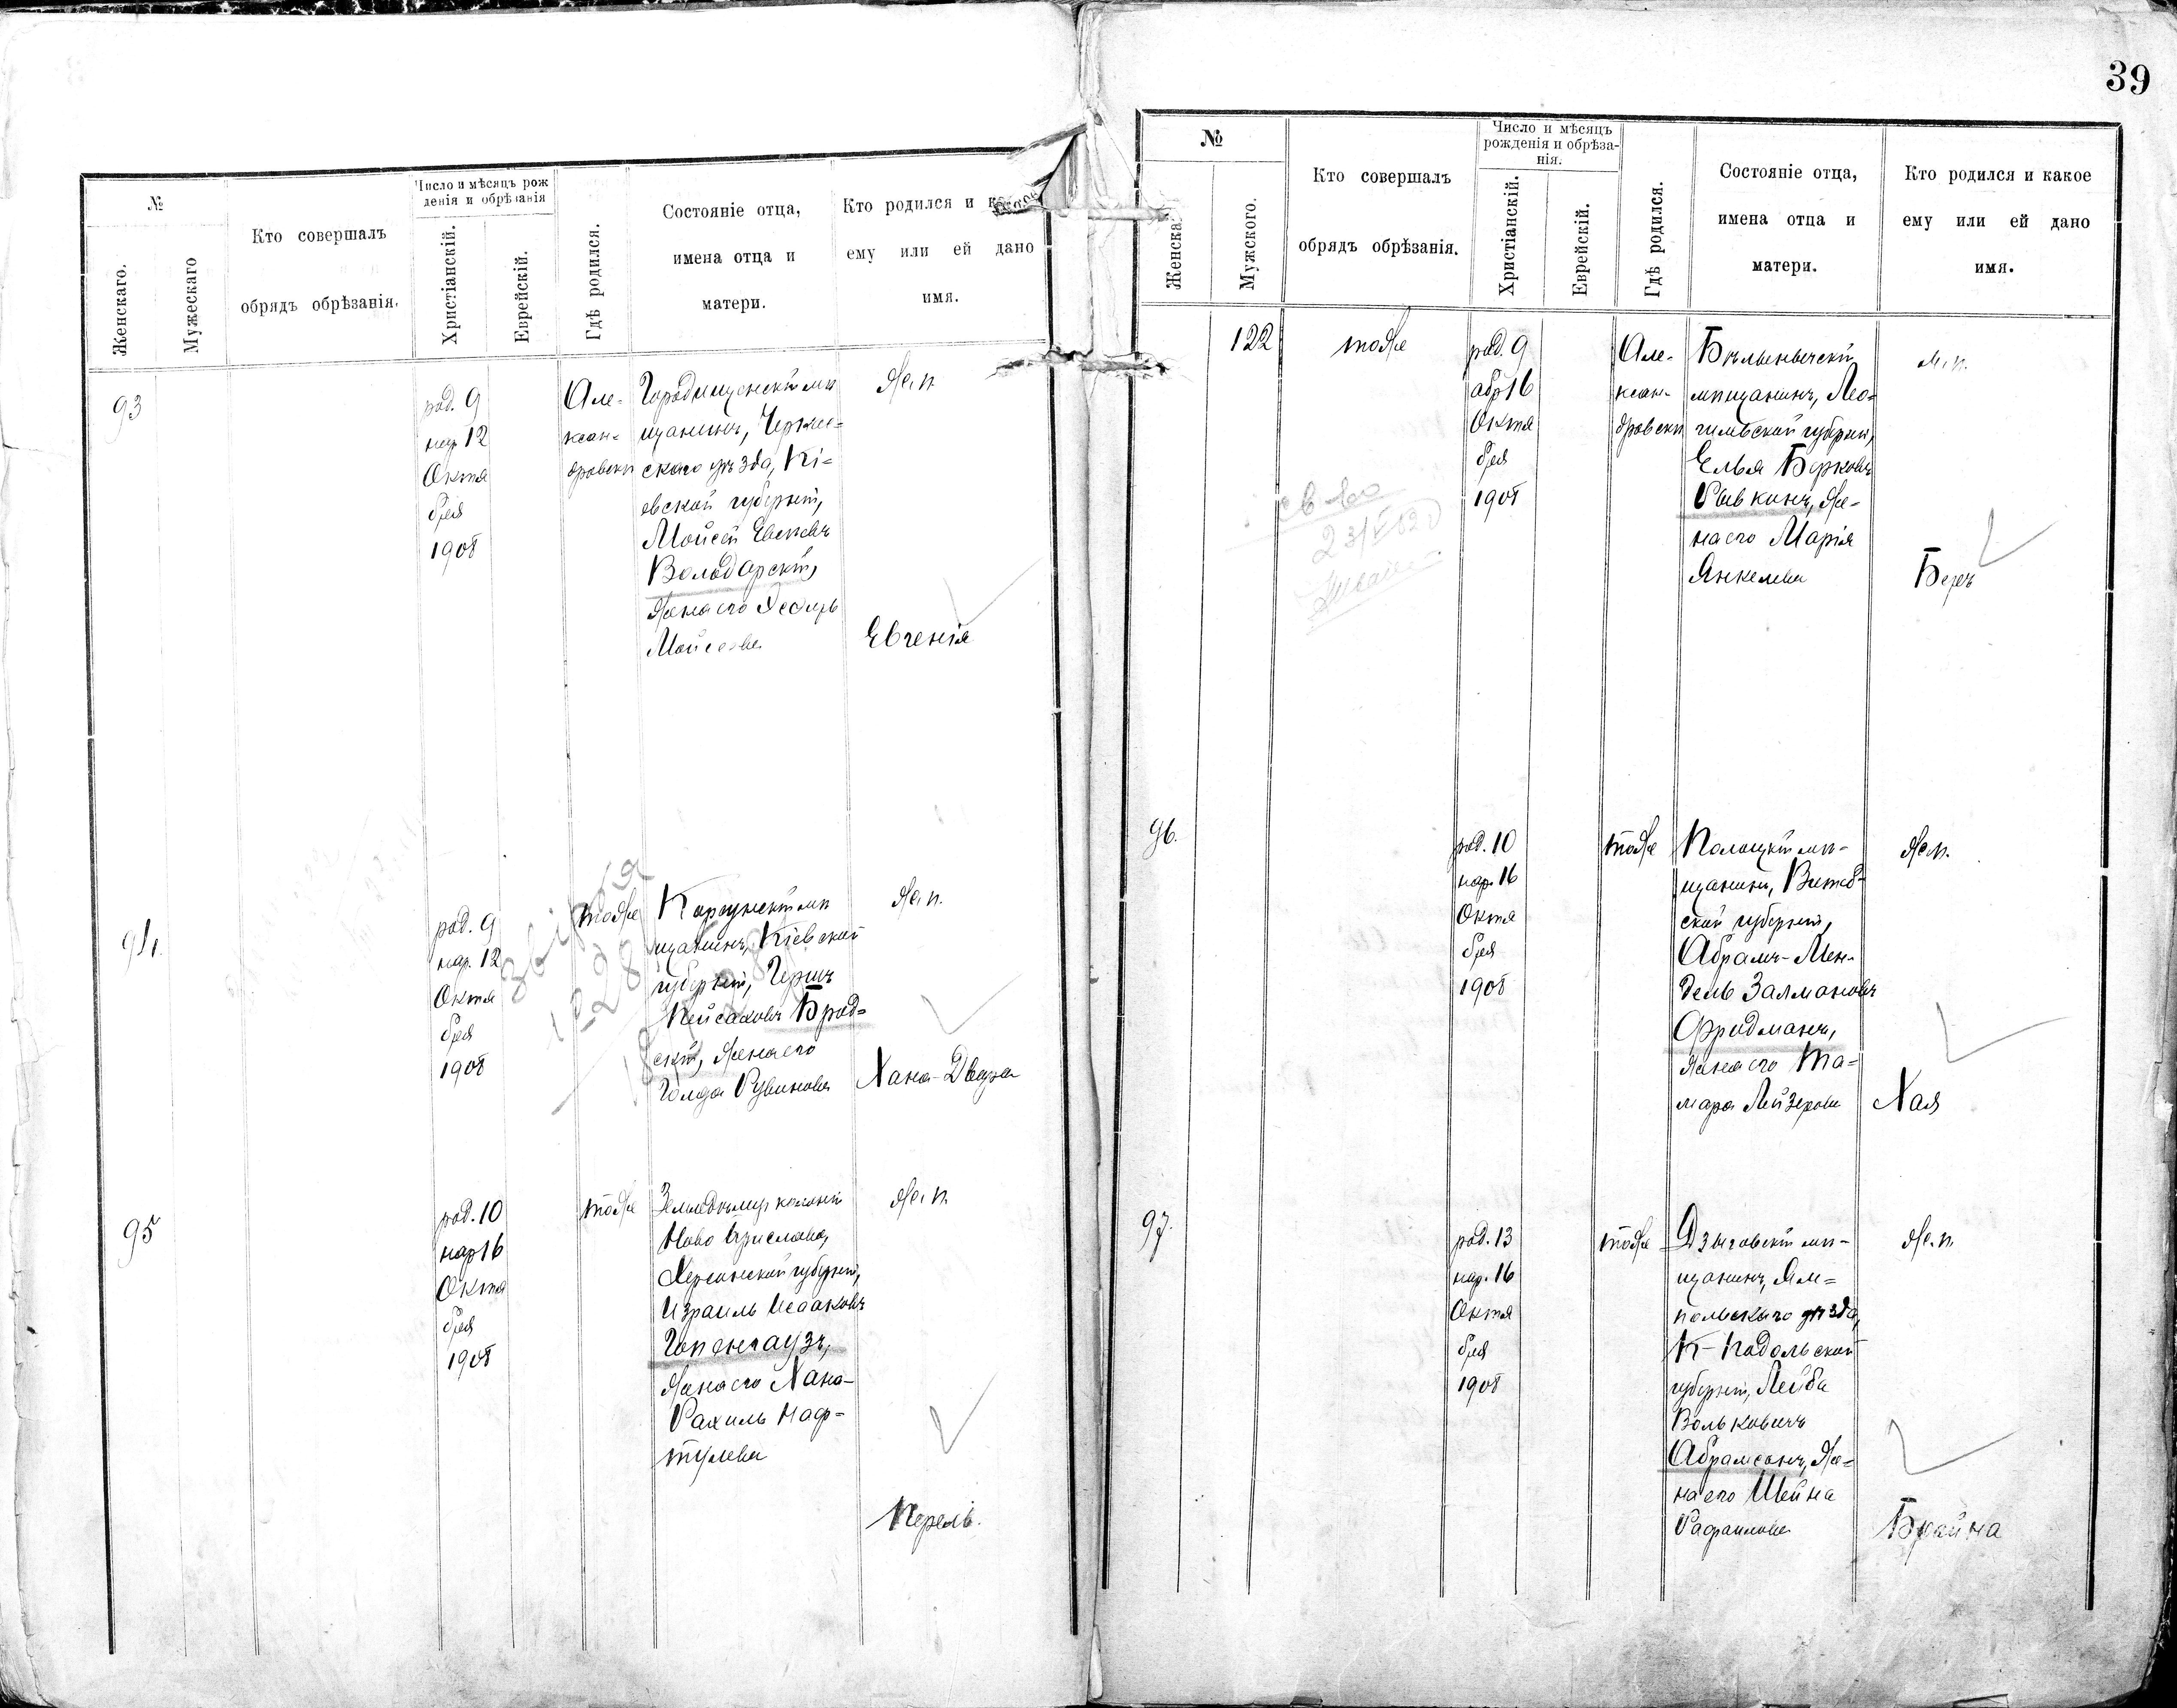 №
Женскаго.
Мужескаго
Кто совершалъ
обрядъ обрѣзанія.
Число и мѣсяцъ рож
денія и обрѣзанія
Христіанскій.
Еврейскій.
Гдѣ родился.
Состояніе отца,
имена отца и
матери.
Кто родился и какое
ему или ей дано
имя.
93
род. 9
нар 12
Октя
бря
1908
Але-
ксан-
дровскъ
Городищенскій мѣ
щанинъ, Черкас-
скаго уѣзда, Кі-
евской губерніи,
Мойсей
Володарскій,
жена его
Мойсеева
Ж. п.
Евгенія
94.
род. 9
нар. 12
Октя
бря
1908
тоже
Корсунскій мѣ
щанинъ, Кіевской
губерніи, Гершъ
Пейсаховъ Брод-
скій, жена его
Голда Рувинова
Ж. п.
Хана-Двейра
95
род. 10
нар 16
Октя
бря
1908
тоже
Земледѣлецъ колоніи
Ново
Херсонской губерніи,
Израиль Исааковъ
Гопенгаузъ,
жена его Хана-
Рахиль Наф-
тулева
Ж. п.
Перель.
39
№
Женскаго
Мужского.
Кто совершалъ
обрядъ обрѣзанія.
Число и мѣсяцъ
рожденія и обрѣза-
нія.
Христіанскій.
Еврейскій.
Гдѣ родился.
Состояніе отца,
имена отца и
матери.
Кто родился и какое
ему или ей дано
имя.
122
тоже
род. 9
обр 16
Октя
бря
1908
Але-
ксан-
дровскъ
Бѣлыничскій
мѣщанинъ, Мо-
гилевской губерніи,
Елья Берковъ
Рывкинъ, же-
на его Марія
Янкелева
М. п.
Беръ
96.
род. 10
нар. 16
Октя
бря
1908
тоже
Полоцкій мѣ-
щанинъ, Витеб-
ской губерніи,
Абрамъ-Мен-
дель Залмановъ
Фридманъ,
жена его Та-
мара Лейзерова
Ж. п.
Хая
97.
род. 13
нар. 16
Октя
бря
1908
тоже
Дзыговскій мѣ-
щанинъ, Ям-
польскаго уѣзда,
К-Подольской
губерніи, Лейба
Вольковичъ
Абрамсонъ, же-
на его Шейна
Рафаилова
Ж. п.
Брайна